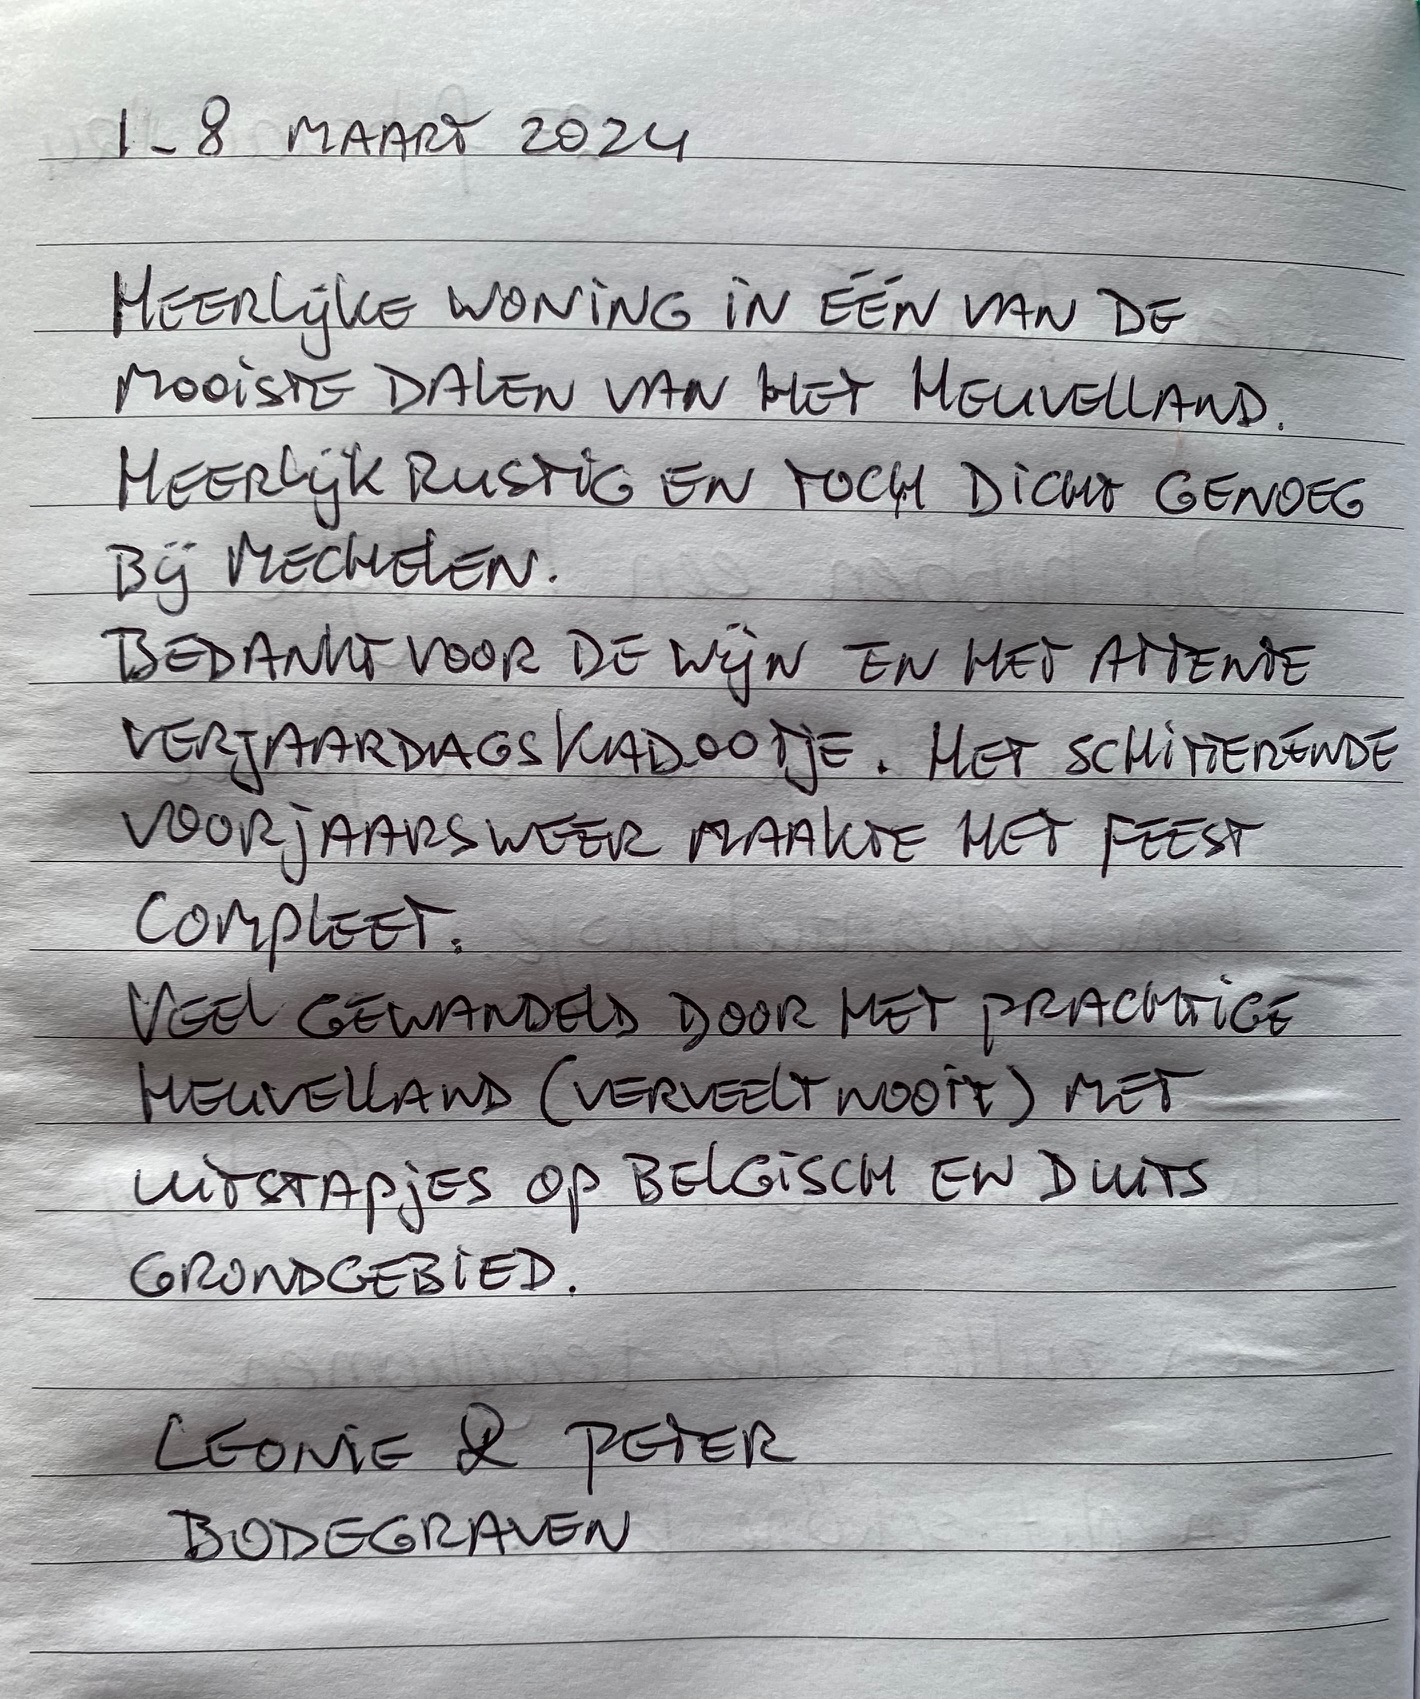 1-8 MAART 2024
HEERLIJKE WONING IN ÉÉN VAN DE
MOOISTE DALEN VAN HET HEUVELLAND.
HEERLIJK RUSTIG EN TOCH DICHT GENOEG
BIJ MECHELEN.
BEDANKT VOOR DE WIJN EN HET ATTENTE
VERJAARDAGSKADOOTJE. HET SCHITTERENDE
VOORJAARSWEER MAAKTE HET FEEST
COMPLEET.
VEEL GEWANDELD DOOR HET PRACHTIGE
HEUVELLAND (VERVEELT NOOIT) MET
UITSTAPJES OP BELGISCH EN DUITS
GRONDGEBIED.
LEONIE & PETER
BODEGRAVEN